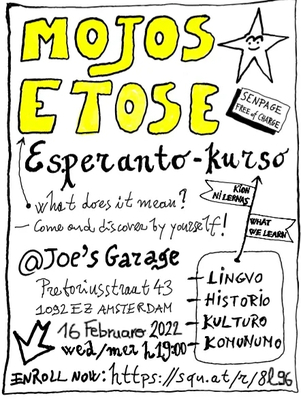 MOJOS
ETOSE
SENPAGE
FREE of CHARGE
Esperanto-kurso
KION
NI LERNAS
WHAT
WE LEARN
what does it mean?
— Come and discover by yourself!
@Joe's Garage
Pretoriusstraat 43
1092 EZ AMSTERDAM
16 Februaro 2022
wed/mer h 19:00
— LINGVO
— HISTORIO
— KULTURO
— KOMUNUMO
ENROLL NOW: https://squ.at/r/8l96